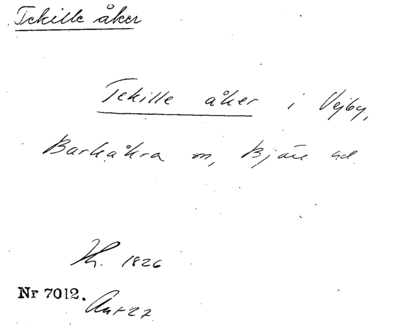 Tekille åker
Tekille åker i Vejby,
Barkåkra sn, Bjäre hd.
1826
Nr 7012.